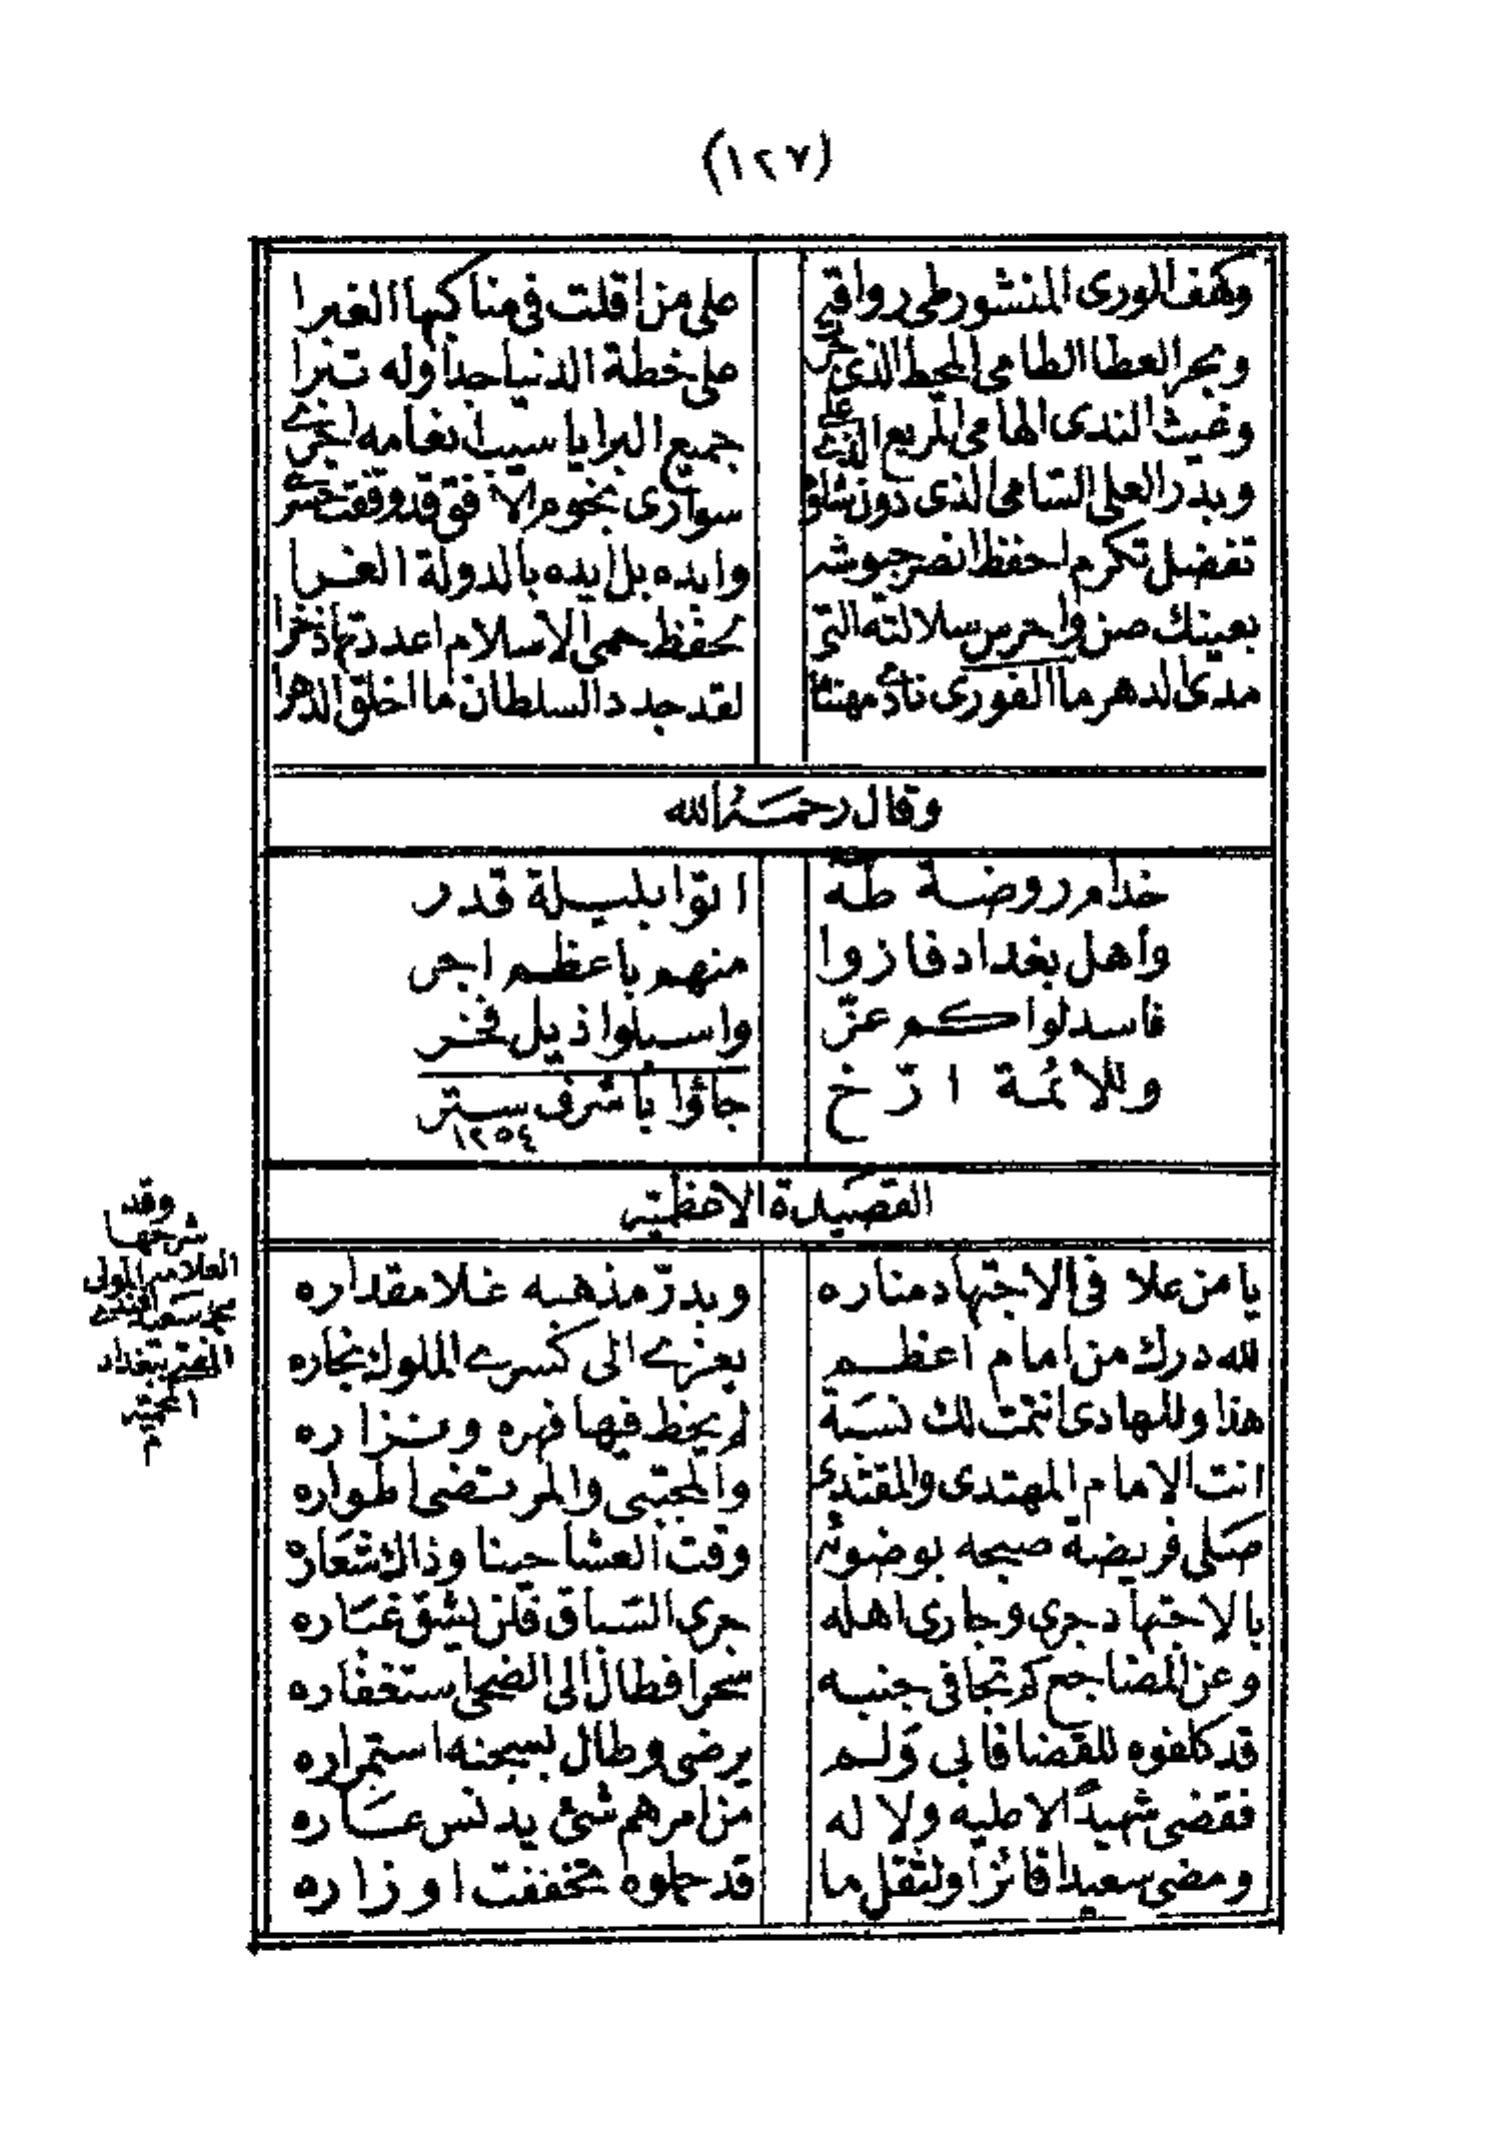 (١٢٧)
وكهف الورى المنشور طى رواقه على من اقلت فى مناكبها الغبرا
وبحر العطا الطامى المحيط الذى جرى على خطة الدنيا جداوله تترا
وغيث الندى الهامى المريع الذى على جميع البرايا سيب انعامه اجرى
وبدر العلى السامى الذى دون شاوه سوارى نجوم الافق قد وقفت حسرى
تفضل تكرم احفظ انصر جيوشه وايده بل ايده بالدولة الغرا
بعينك صن واحرس سلالته التى بحفظ حمى الاسلام اعددتها ذخرا
مدى الدهر ما الفورى نادى مهنئا لقد جدد السلطان ما اخلق الدهرا
وقال رحمة الله
خدام روضة طه اتوا بليلة قدر
وأهل بغداد فازوا منهم باعظم اجر
فاسدلوا كم عز واسبلوا ذيل فخر
وللأئمة ارّخ جاؤا باشرف ستر
١٢٥٤
القصيدة الاعظمية
يا من علا فى الاجتهاد مناره وبدرّ مذهبه غلا مقداره
لله درك من امام اعظم يعزى الى كسرى الملوك نجاره
هذا وللهادى انتمت لك نسبة لم يحظ فيها فهره ونزاره
انت الامام المهتدى والمقتدى والمجتبى والمرتضى اطواره
صلى فريضة صبحه بوضوئه وقت العشا حينا وذاك شعاره
بالاجتهاد جرى وجارى اهله جرى السباق فلن يشق غباره
وعن المضاجع كم تجافى جنبه سحرا فطال الى الضحى استغفاره
قد كلفوه للقضا فابى ولم يرضى وطال بسجنه استمراره
فقضى شهيدًا لا عليه ولا له من امرهم شئ يدنس عاره
ومضى سعيدا فائزا ولثقل ما قد حملوه تخففت اوزاره
وقد
شرحها
العلامة المولى
محمد سعيد افندى
المفتى ببغداد